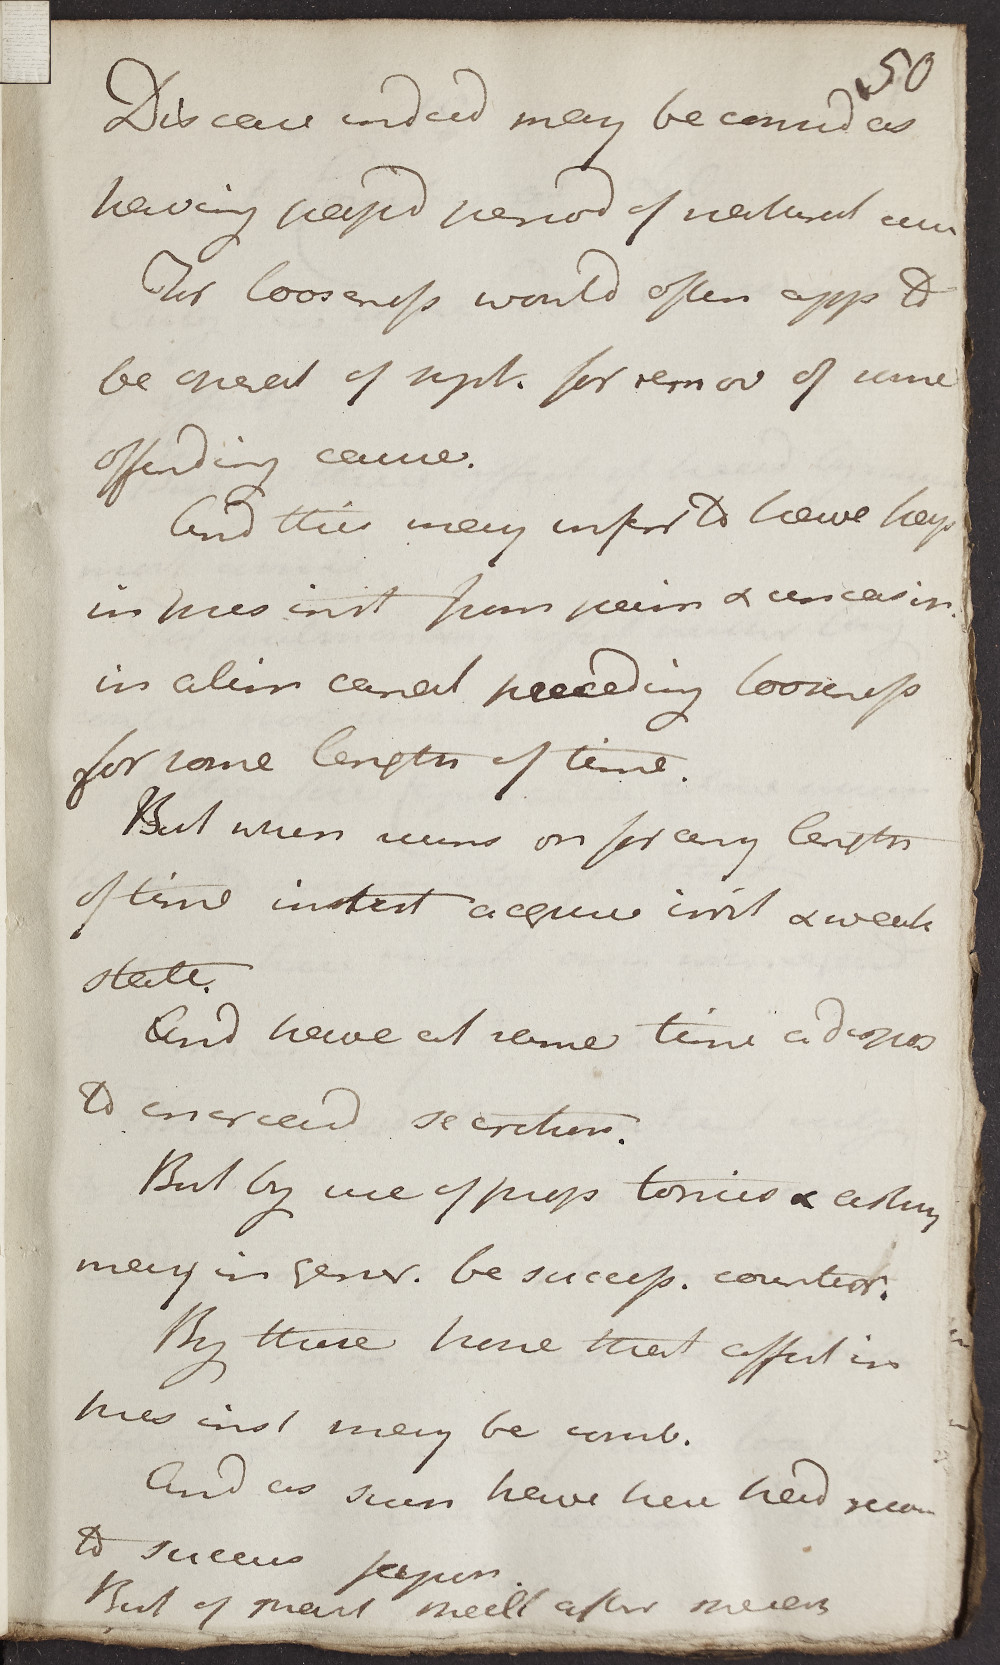 50
Disease indeed may be consid as
having pass'd period of natural cure
The looseness would often app to
be operat of syst. for remov of some
offending cause.
And this may infer to have hap
in pres inst from pain & uneasin.
in alim canal preceding looseness
for some length of time.
But when runs on for any length
of time intest acquire irrit & weak
state.
And have at same time a dispos
to increased secretion.
But by use of prop tonics & astring
may in gener. be success. counter.
By these hope that affect in
pres inst may be comb.
And as such have here had recou
to succus
But of meat after